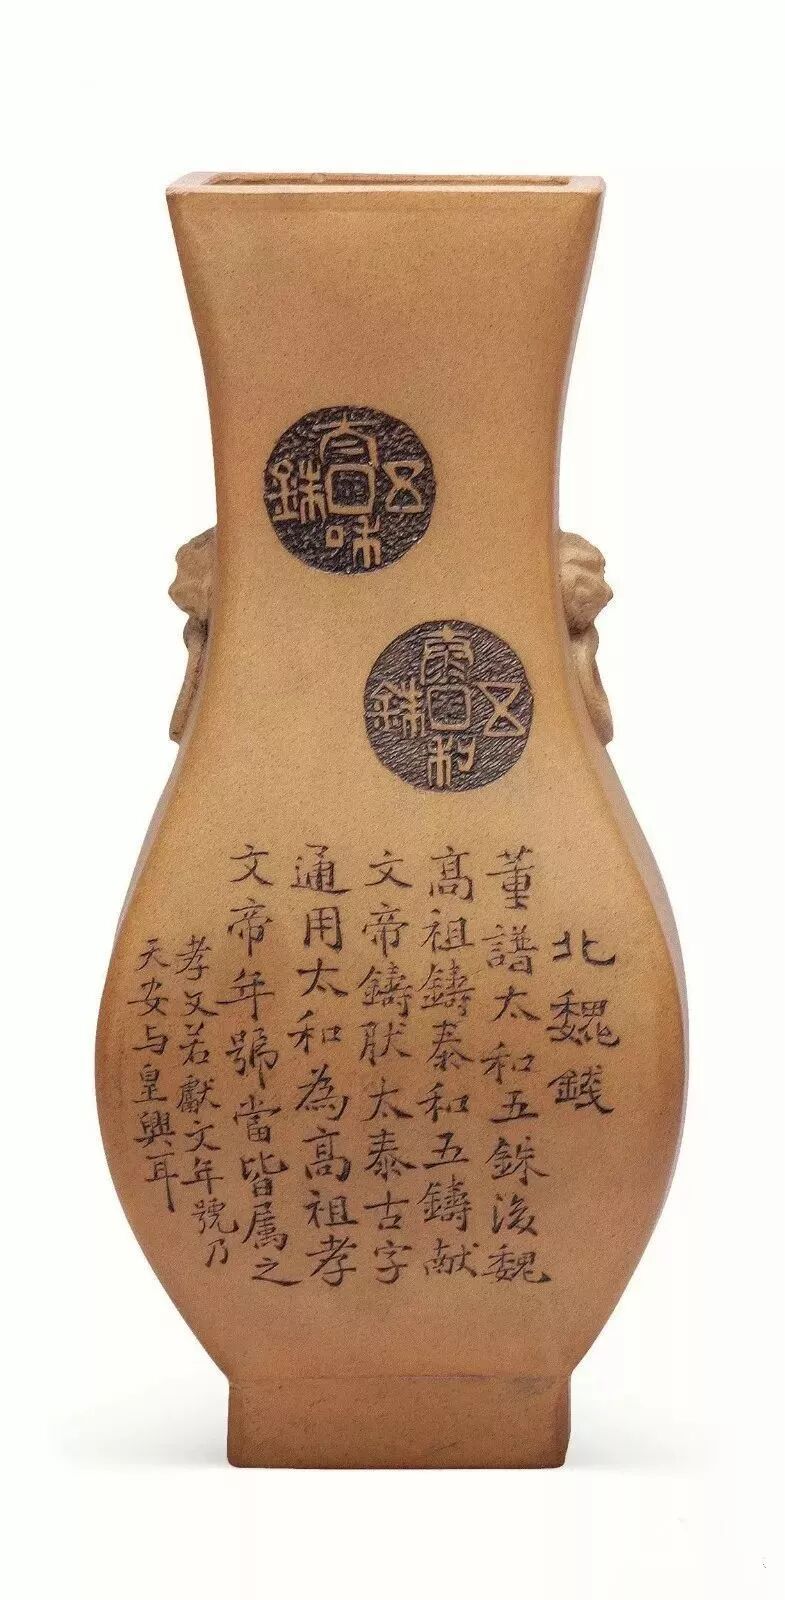 太和五銖
泰和五銖
北魏錢
董譜太和五銖後魏
高祖鑄泰和五鑄献
文帝鑄肰太泰古字
通用太和為高祖孝
文帝年號當皆属之
孝文若獻文年號乃
天安与皇興耳